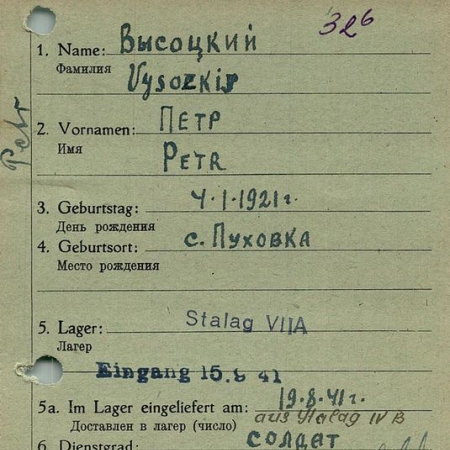 326
1. Name: Высоцкий
Фамилия
Vysozkij
Petr
2. Vornamen: Петр
Имя
Petr
3. Geburtstag: 4·1·1921 г.
День рождения
4. Geburtsort: с. Пуховка
Место рождения
5. Lager: Stalag VIIA
Лагер
Eingang 15.9 41
5a. Im Lager eingeliefert am: 19.8.41 г.
Доставлен в лагер (число) aus Stalag IV B
6. Dienstgrad: солдат